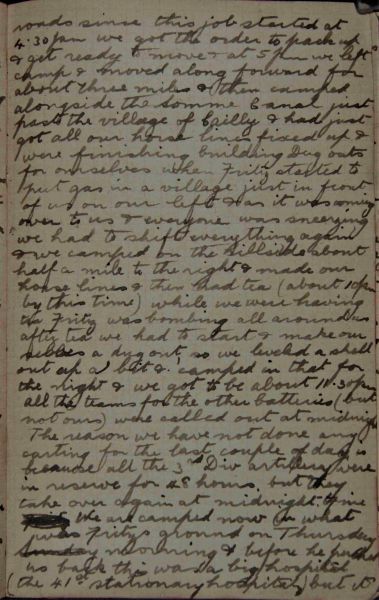 roads since this job started at
4.30 pm we got the order to pack up
& get ready to move & at 5 pm we left
camp & moved along forward for
about three miles & then camped
alongside the Somme Canal just
past the village of Cailly & had just
got all our horse lines fixed up &
were finishing building Dug outs
for ourselves when Fritz started to
put gas in a village just in front
of us on our left & as it was coming
over to us & everyone was sneezing
we had to shift everything again
& we camped on the hillside about
half a mile to the right & made our
horse lines & then had tea (about 10 pm
by this time) while we were having
tea Fritz was bombing all around us
after tea we had to start & make our
selves a dug out, so we leveled a shell
out up a bit & camped in that for
the night & we got to be about 11.30 pm
all the teams for the other batteries (but
not ours) were called out at midnight
The reason we have not done any
carting for the last couple of days is
because all the 3rd Div artillery were
in reserve for 48 hours. but they
take over again at midnight.
We are camped now on what
was Fritzs ground on Thursday
morning & before he pushed
us back this was a big hospital
(the 41st stationary hospital) but it